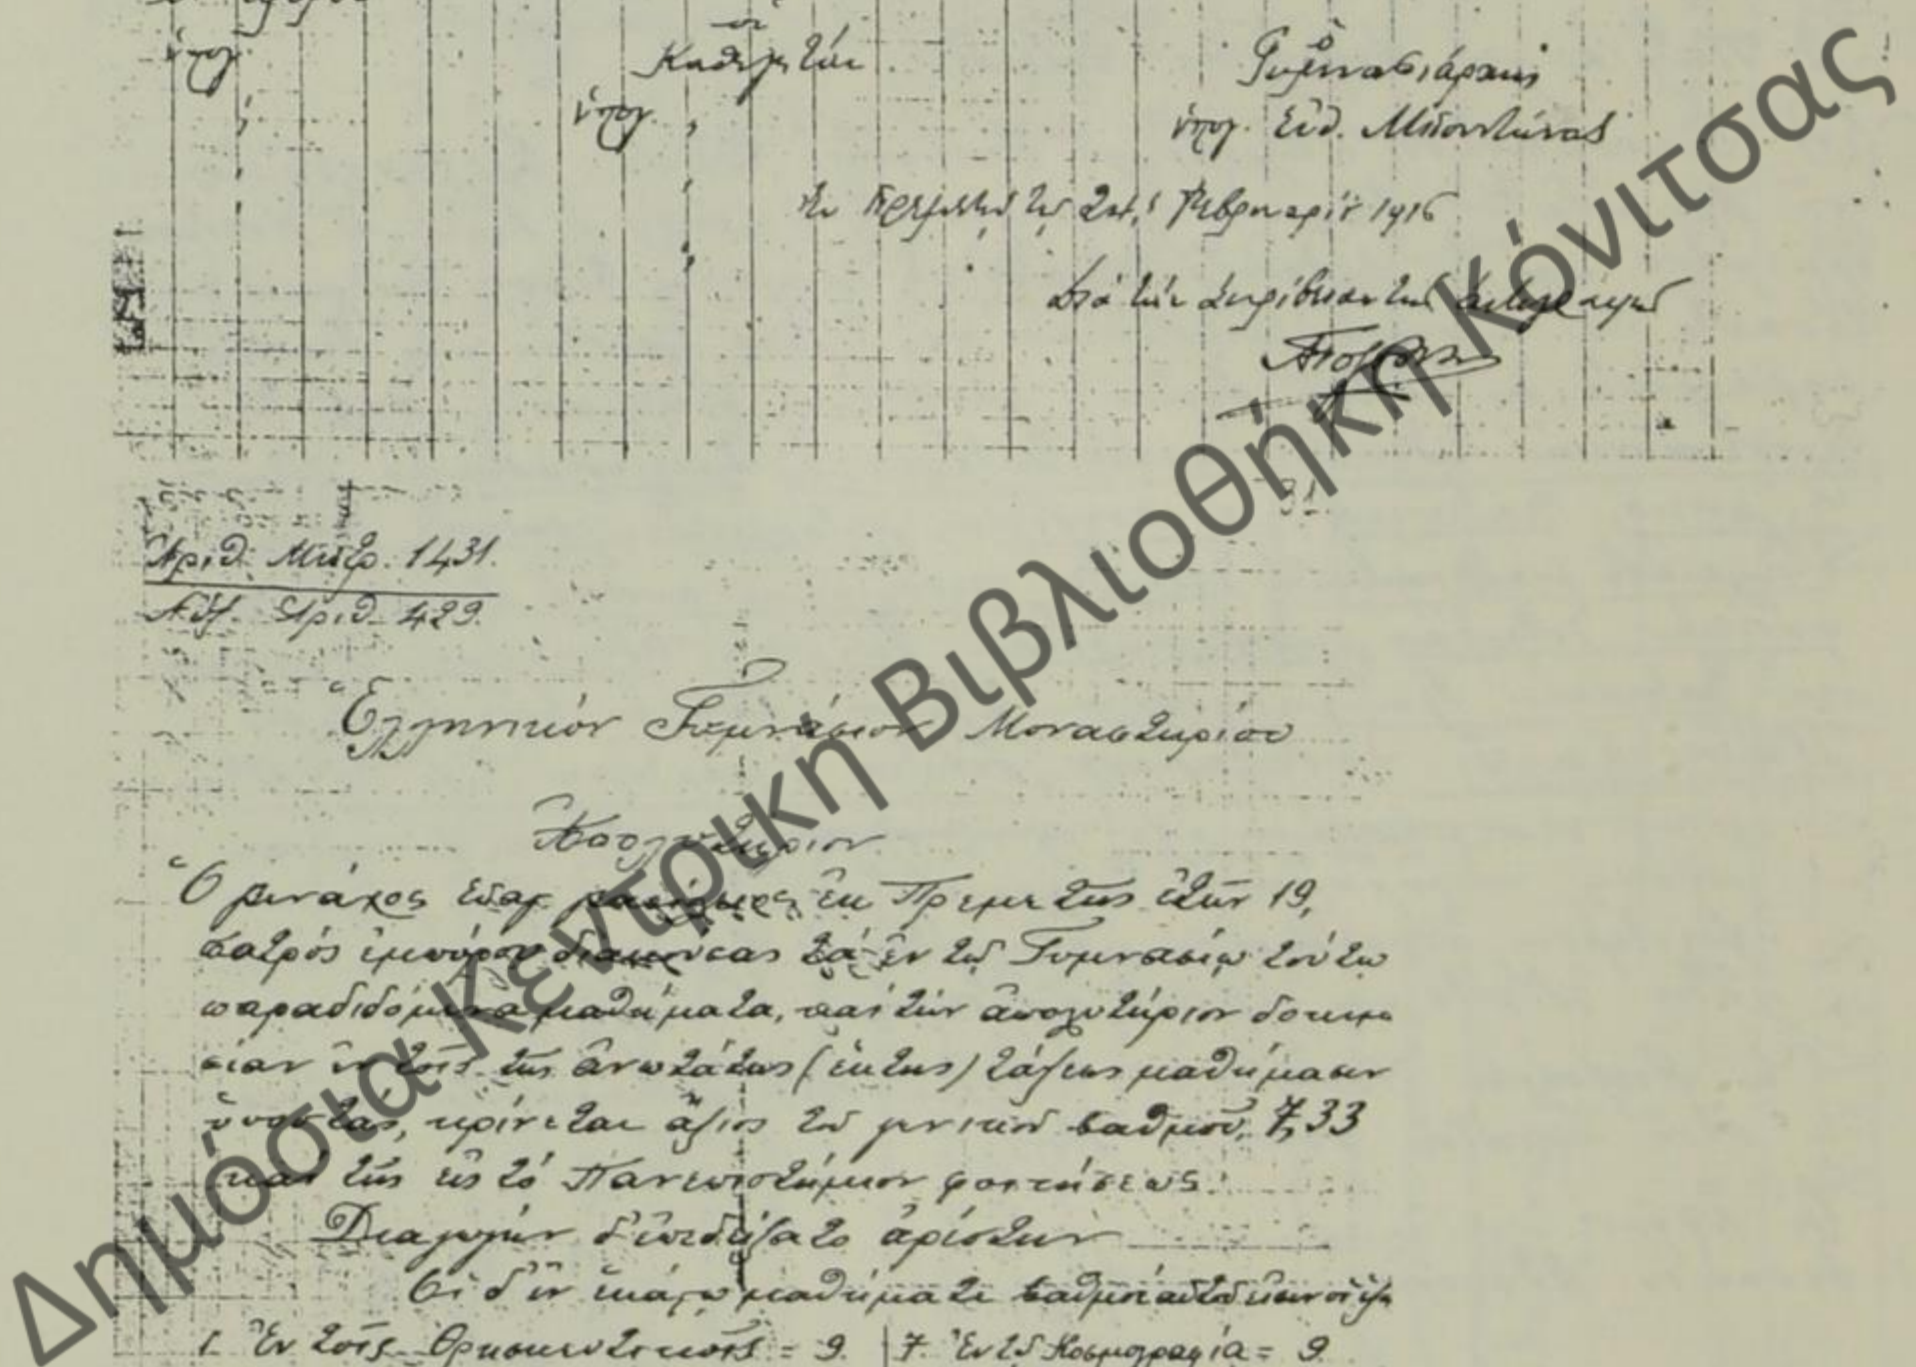 οἱ
Καθηγηταί
ὁ
Γυμνασιάρχης
ὑπογ.
ὑπογ.
ὑπογ. Εὐθ. Μπουντώνας
Ἐν Πρεμετῇ τῇ Φεβρουαρίου 1916
Διὰ τὴν ἀκρίβειαν τῆς ἀντιγραφῆς
Ἀριθ. Μητρ. 1431.
Αὔξ. Ἀριθ. 429.
Ἑλληνικὸν Γυμνάσιον Μοναστηρίου
Ἀπολυτήριον
Ὁ ἐκ Πρεμετῆς ἐτῶν 19,
πατρὸς ἐμπόρου διακούσας τὰ ἐν τῷ Γυμνασίῳ τούτῳ
παραδιδόμενα μαθήματα, καὶ τὴν ἀπολυτήριον δοκιμα
σίαν ἐν τοῖς τῆς ἀνωτάτης (ἕκτης) τάξεως μαθήμασιν
ὑποστάς, κρίνεται ἄξιος τοῦ γενικοῦ βαθμοῦ, 7,33
καὶ τῆς εἰς τὸ Πανεπιστήμιον φοιτήσεως.
Διαγωγὴν δ' ἐπεδείξατο ἀρίστην
Οἱ δ' ἐν ἑκάστῳ μαθήματι βαθμοὶ αὐτοῦ εἰσιν οἱ ἑξῆς
1. Ἐν τοῖς Θρησκευτικοῖς = 9. 7. Ἐν τῇ Κοσμογραφίᾳ = 9
Δημόσια Κεντρική Βιβλιοθήκη Κόνιτσας